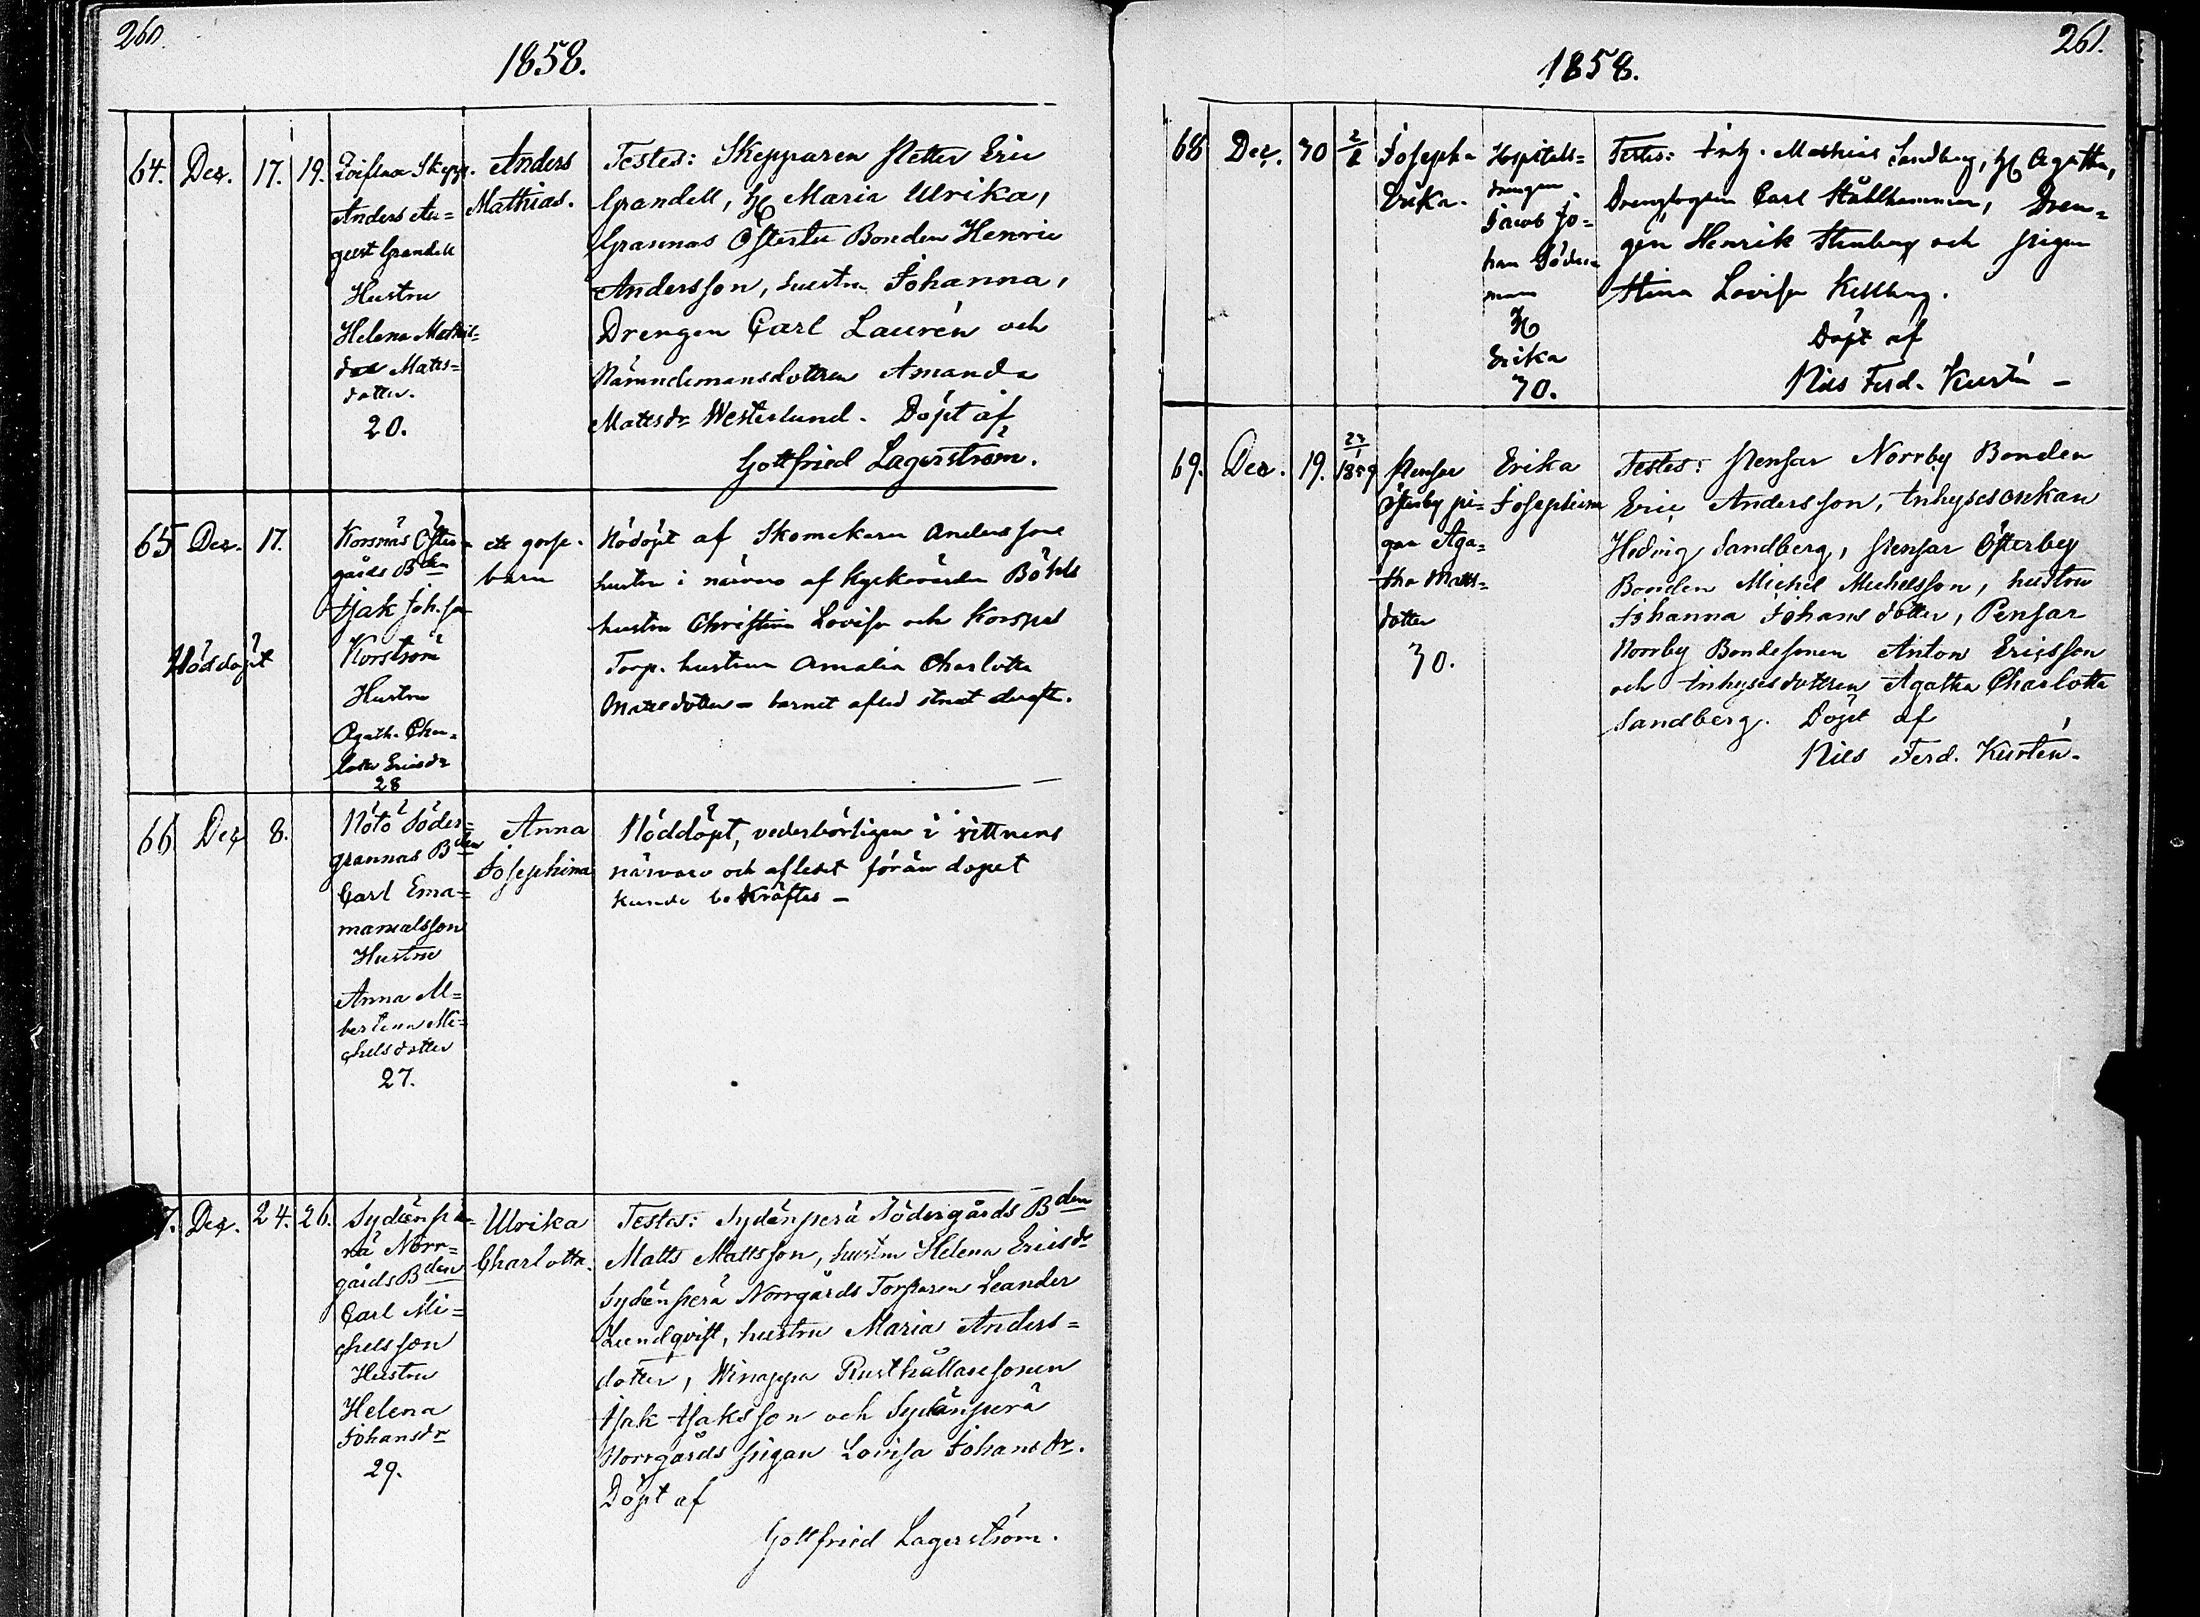 260.
1858.
64. Dec. 17. 19.
Anders Au=
gust Grandell
Hustru
Helena Mathil=
da Matts=
dotter.
20.
Anders
Mathias.
Testes: Skepparen Petter Eric
Grandell, H Maria Ulrika,
Grannas Österbu Bonden Henric
Andersson, hustru Johanna,
Drengen Carl Laurén och
Nämndemansdottren Amanda
Mattsdr Westerlund. Döpt af
Gottfried Lagerström.
65 Dec. 17.
Nöddöpt
Korsnäs Öster=
gårds Bden
Isak Joh.son
Korström
Hustru
Agath. Char=
lotta Ericsdr
28
ett gosse-
barn
Nödöpt af Skomakaren Anderssons
hustru i närvaro af Kyrkovärden Böhls
hustru Christina Lovisa och Korspas
Torp. hustrun Amalia Charlotta
Matsdotter - barnet afled strat dereft.
66 Dec 8.
Nötö Söder=
grannas Bden
Carl Ema=
manuelsson
Hustru
Anna Al=
bertina Mi=
chelsdotter
27.
Anna
Josephina
Nöddöpt, vederbörligen i vittnens
närvaro och aflidet förän dopet
kunde bekräftas -
7. Dec. 24. 26.
Sydänpe=
rä Norr=
gårds Bden
Carl Mi=
chelsson
Hustru
Helena
Johansdr
29.
Ulrika
Charlotta.
Testes: Sydänperä Södergårds Bden
Matts Mattsson, hustru Helena Ericsdr
Sydänperä Norrgårds Torparen Leander
Lundqvist, hustru Maria Anders=
dotter, Winappa Rusthållaresonen
Isak Isaksson och Sydänperä
Norrgårds pigan Lovisa Johansdr.
Döpt af
Gottfried Lagerström.
261.
1858.
68 Dec. 30 2/1
Josepha
Erika.
Hospitals=
drengen
Jacob Jo=
han Söder=
man
H
Erika
30.
Testes: Inh. Mathias Sandberg, H Agatha,
Carl Stålhammar, Dren=
gen Henrik Stenberg och pigan
Stina Lovisa Kellberg.
Döpt af
Nils Ferd. Kustén -
69. Dec. 19. 23/1 1859
Pensar
Österby pi=
gan Aga=
tha Matts=
dotter
30.
Erika
Josephina
Testes: Pensar Norrby Bonden
Eric Andersson, Inhysesenkan
Hedvig Sandberg, Pensar Österby
Bonden Michel Michelsson, hustru
Johanna Johansdotter, Pensar
Norrby Bondesonen Anton Ericsson
och Inhysesdottren Agatha Charlotta
Sandberg. Döpt af
Nils Ferd. Kustén.